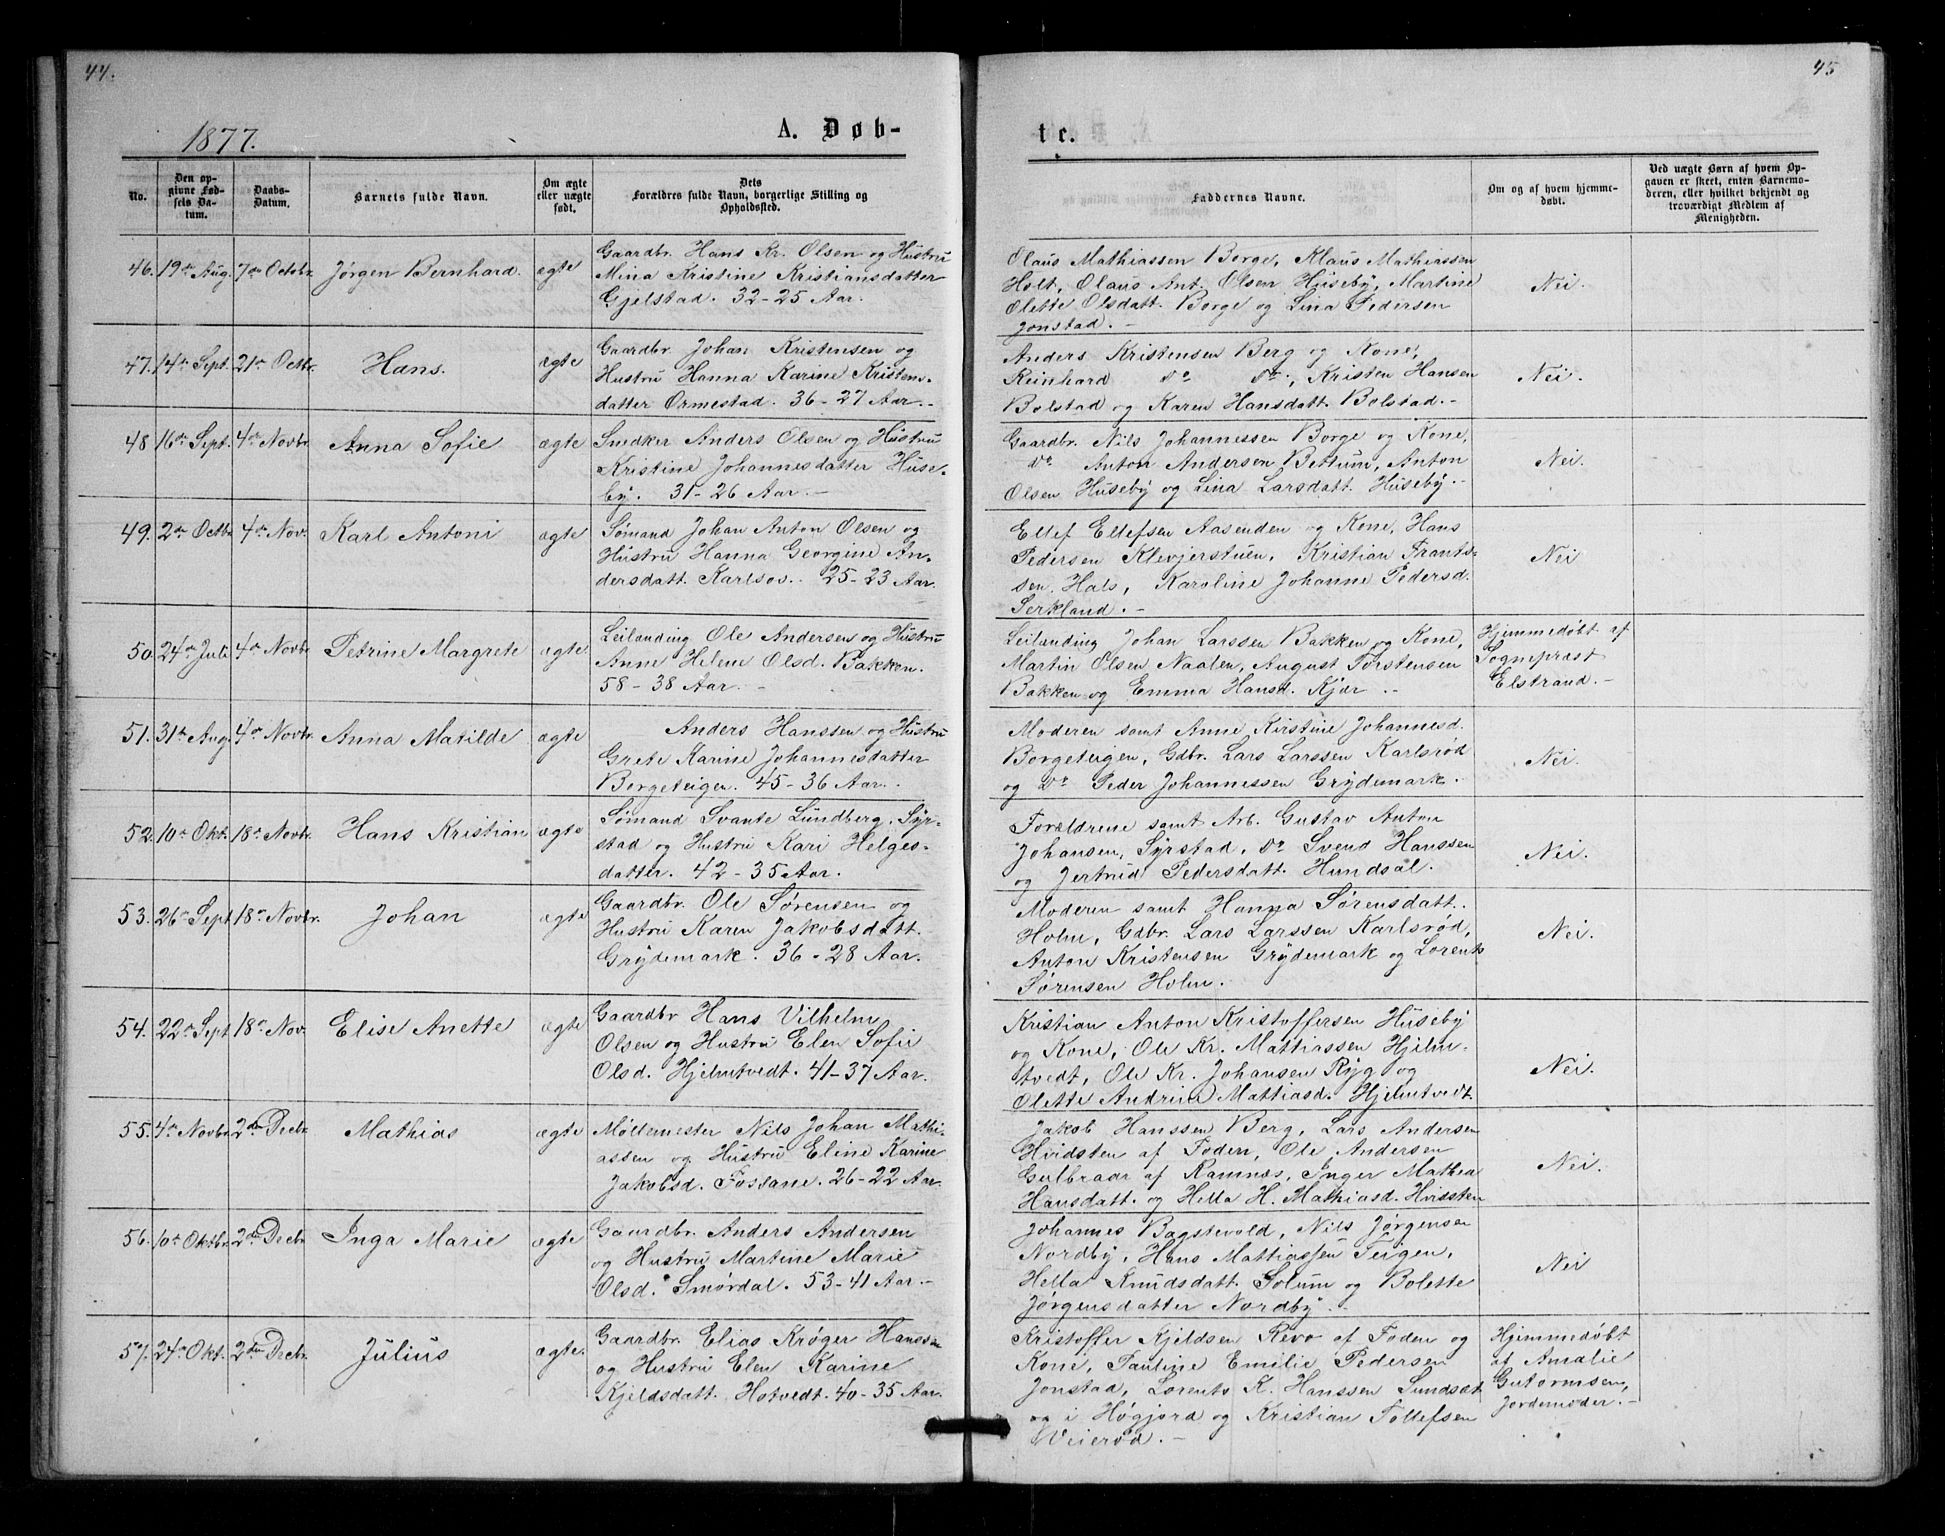 44.
45
1877.
A. Døb-
te.
No.
Den op-
givne Fød-
sels Da-
tum.
Daabs-
Datum.
Barnets fulde Navn.
Om ægte
eller uægte
født.
Dets
Forældres fulde Navn, borgerlige Stilling og
Opholdssted.
Faddernes Navne.
Om og af hvem hjemme-
døbt.
Ved uægte Børn af hvem Op-
gaven er skeet, enten Barnemo-
deren, eller hvilket bekjendt og
troværdigt Medlem af
Menigheden.
46. 19de Aug. 7de Octobr. Jørgen Bernhard. ægte
Gaardbr. Hans Kr. Olsen og Hustru
Mina Kristine Kristiansdatter
Gjelstad. 32-25 Aar.
Olaus Mathiassen Borge, Klaus Mathiassen
Holt, Olaus Ant. Olsen Huseby, Martine
Olette Olsdatt. Borge og Lina Pedersen
Jonstad.-
Nei.
47. 14de Sept. 21de Octbr. Hans. ægte
Gaardbr. Johan Kristensen og
Hustru Hanna Karine Kristens-
datter Ormestad. 36-27 Aar.-
Anders Kristensen Berg og Kone,
Reinhard do do, Kristen Hansen
Bolstad og Karen Hansdatt. Bolstad.-
Nei.
48 16de Sept. 4de Novbr. Anna Sofie ægte
Snedker Anders Olsen og Hustru
Kristine Johannesdatter Huse-
by. 31-26 Aar.-
Gaardbr. Nils Johannessen Borge og Kone,
do Anton Andersen Bettum, Anton
Olsen Huseby og Lina Larsdatt. Huseby.-
Nei.
49. 2den Octbr. 4de Nov. Karl Antoni ægte
Sømand Johan Anton Olsen og
Hustru Hanna Georgine An-
dersdatt. Karlsøs. 25-23 Aar.
Ellef Ellefsen Aasenden og Kone, Hans
Pedersen Klevjerstuen, Kristian Frants-
sen Hals, Karoline Johanne Pedersd.
Serkland.-
Nei
50. 24de Juli 4de Novbr. Petrine Margrete ægte
Leilending Ole Andersen og Hustru
Anne Helene Olsd. Bakken.
58-38 Aar.-
Leilending Johan Larssen Bakken og Kone,
Martin Olsen Naalen, August Torstensen
Bakken og Emma Hansd. Kjær.-
Hjemmedøbt af
Sognepræst
Elstrand.-
51. 31te Aug. 4de Novbr. Anna Matilde ægte
Anders Hanssen og Hustru
Grete Karine Johannesdatter
Borgeteigen. 45-36 Aar.
Moderen samt Anne Kirstine Johannesd.
Borgeteigen, Gdbr. Lars Larssen Karlsrød
og do Peder Johannessen Grydemark.
Nei.
52. 10de Okt. 18de Novbr. Hans Kristian ægte
Sømand Svante Lundberg. Syr-
stad og Hustru Kari Helges-
datter. 42-35 Aar.
Forældrene samt Arb. Gustav Anton
Johansen, Syrstad, do Svend Hanssen
og Jertrud Pedersdatt. Hundsal.
Nei.
53. 26de Sept 18de Novbr. Johan ægte
Gaardbr. Ole Sørensen og
Hustru Karen Jakobsdatt.
Grydemark. 36-28 Aar.
Moderen samt Hanna Sørensdatt.
Holm, Gdbr. Lars Larssen Karlsrød,
Anton Kristensen Grydemark og Lorents
Sørensen Holm.
Nei.
54. 22de Sept 18de Nov. Elise Anette ægte
Gaardbr Hans Vilhelm
Olsen og Hustru Elen Sofie
Olsd. Hjelmtvedt. 41-37 Aar.
Kristian Anton Kristoffersen Huseby
og Kone, Ole Kr. Mattiassen Hjelm-
tvedt, Ole Kr. Johansen Ryg og
Olette Andrine Mattiasd. Hjelmtvedt.
Nei.
55. 4de Novbr. 2den Decbr. Mathias ægte
Møllemester Nils Johan Mathi-
assen og Hustru Eline Karine
Jakobsd. Fossane. 26-22 Aar.
Jakob Hanssen Berg, Lars Andersen
Hvidsten af Foden, Ole Andersen
Gulbraar af Ramnæs, Inger Mathea
Hansdatt. og Hella H. Mathiasd. Hvissten
Nei.
56. 10de Oktbr. 2den Decbr. Inga Marie ægte
Gaardbr. Anders Andersen
og Hustru Martine Marie
Olsd. Smørdal. 53-41 Aar.-
Johannes Bagstevold, Nils Jørgensen
Nordby, Hans Mattiassen Teigen,
Hella Knudsdatt. Solum og Bolette
Jørgensdatter Nordby.-
Nei
57. 24de Okt. 2den Decbr. Julius ægte.
Gaardbr. Elias Krøger Hanssen
og Hustru Elen Karine
Kjeldsdatt. Hotvedt. 40-35 Aar.
Kristoffer Kjeldsen Revo af Foden og
Kone, Pauline Emilie Pedersen
Jonstad, Lorents K. Hanssen Sundsæt
og i Høgjord og Kristian Tollefsen
Weierød.-
Hjemmedøbt
af Amalie
Gutormsen,
Jordemoder.-